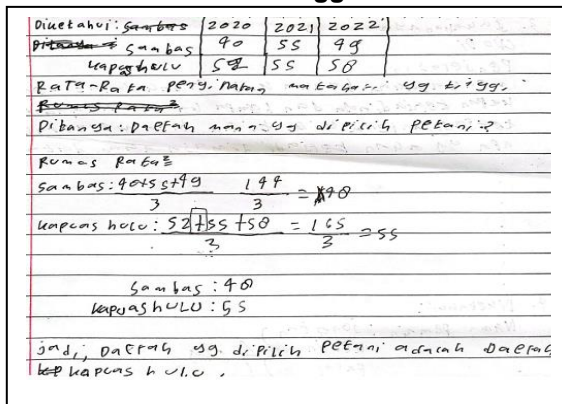 gg
Diketahui: Sambas 2020 2021 2022
Ditanya Sambas 40 55 49
Kapuas hulu 52 55 58
Rata-Rata penyinaran matahari yg tinggi
Rumus Rata²
Ditanya: Daerah mana yg dipilih petani?
Rumus Rata²
Sambas: 40+55+49 144
3 3 = 48
Kapuas hulu: 52+55+58 = 165
3 3 = 55
Sambas: 48
Kapuas hulu: 55
jadi, Daerah yg dipilih petani adalah Daerah
Kapuas hulu.